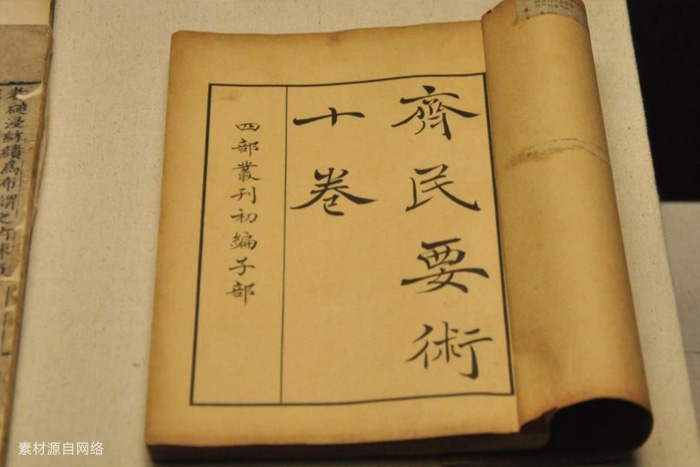 齊民要術
十卷
四部叢刊初編子部
素材源自网络